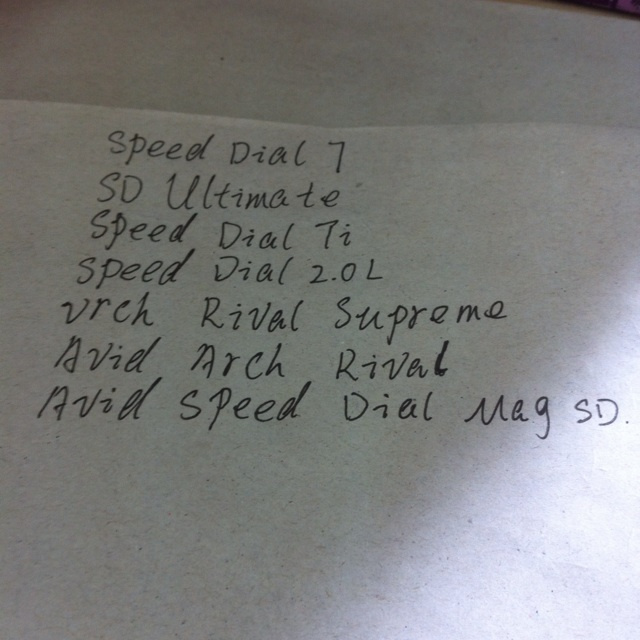 Speed Dial 7
SD Ultimate
Speed Dial Ti
Speed Dial 2.0L
vrch Rival Supreme
Avid Arch Rival
Avid Speed Dial Mag SD.